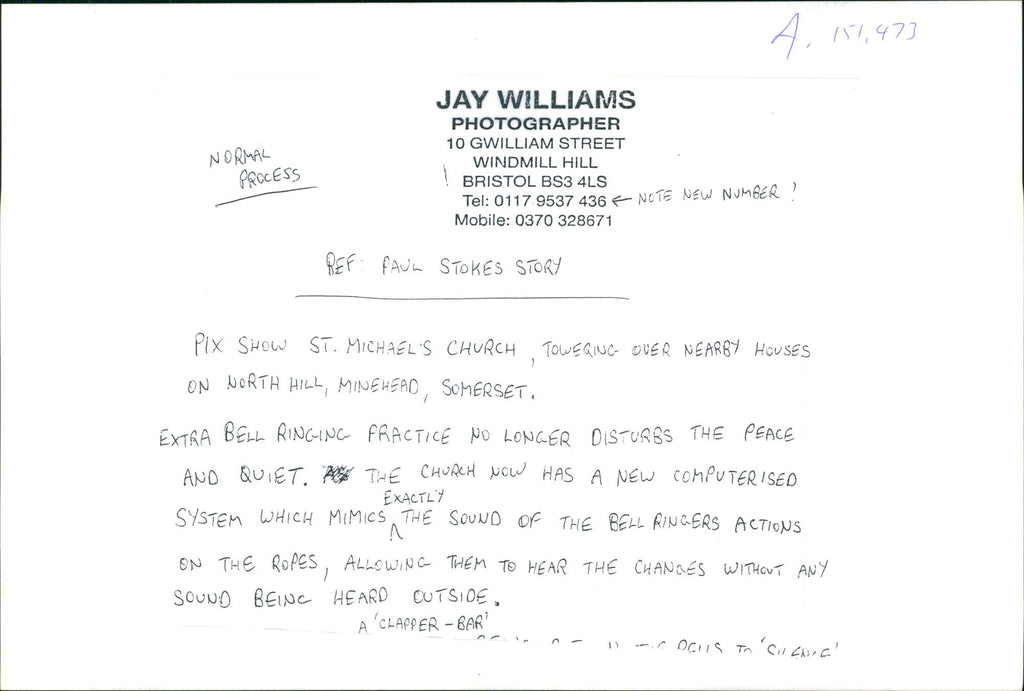 A. 151,473
JAY WILLIAMS
PHOTOGRAPHER
10 GWILLIAM STREET
WINDMILL HILL
BRISTOL BS3 4LS
Tel: 0117 9537 436 ← NOTE NEW NUMBER!
Mobile: 0370 328671
NORMAL
PROCESS
REF: PAUL STOKES STORY
PIX SHOW ST. MICHAEL'S CHURCH, TOWERING OVER NEARBY HOUSES
ON NORTH HILL, MINEHEAD, SOMERSET.
EXTRA BELL RINGING PRACTICE NO LONGER DISTURBS THE PEACE
AND QUIET. THE CHURCH NOW HAS A NEW COMPUTERISED
EXACTLY
SYSTEM WHICH MIMICS THE SOUND OF THE BELL RINGERS ACTIONS
ON THE ROPES, ALLOWING THEM TO HEAR THE CHANGES WITHOUT ANY
SOUND BEING HEARD OUTSIDE.
A 'CLAPPER-BAR'
BELLS TO 'SILENCE'